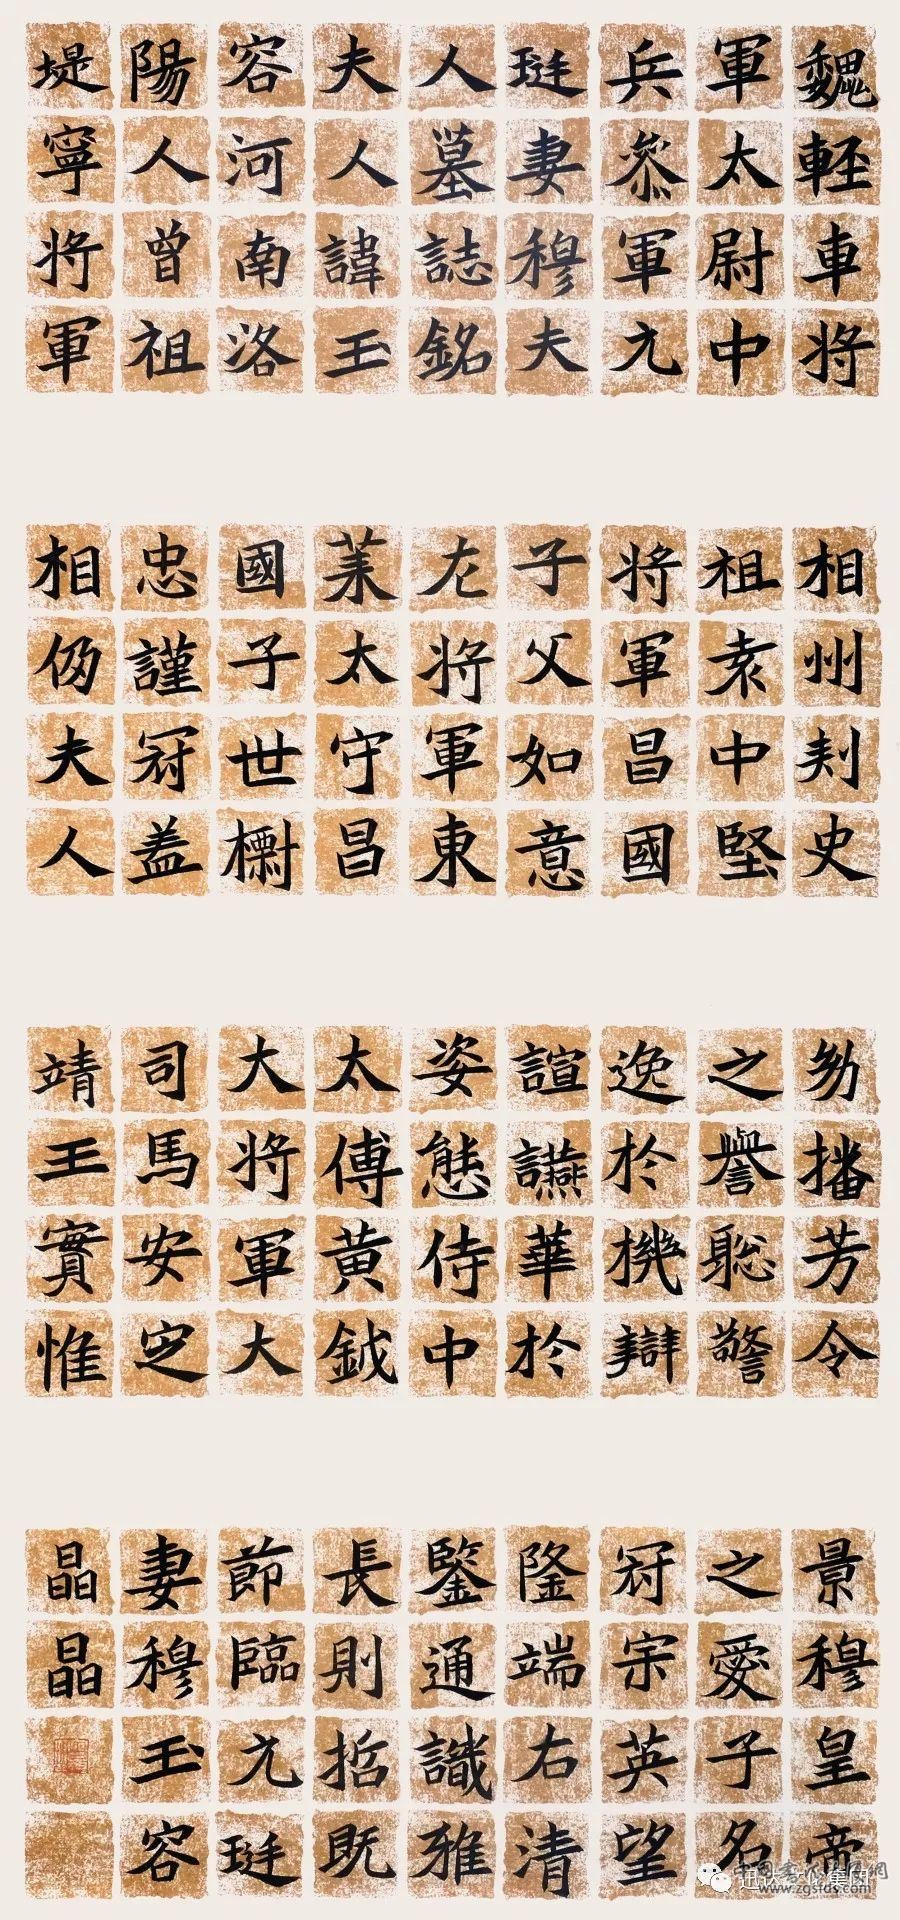 魏輕車將
軍太尉中
兵叅軍元
珽妻穆夫
人墓誌銘
夫人諱玉
容河南洛
陽人曾祖
堤寧將軍
相州刾史
祖袁中堅
將軍昌國
子父如意
左將軍東
萊太守昌
國子世
忠謹冠盖
相仍夫人
幼播芳令
之譽聡警
逸於機辯
諠讌華於
姿態侍中
太傅黄鉞
大將軍大
司馬安定
靖王實惟
景穆皇帝
之愛子名
冠宗英望
隆端右清
鑒通識雅
長則哲既
節臨元珽
妻穆玉容
晶晶
迅达文化集团
www.zgsfds.com